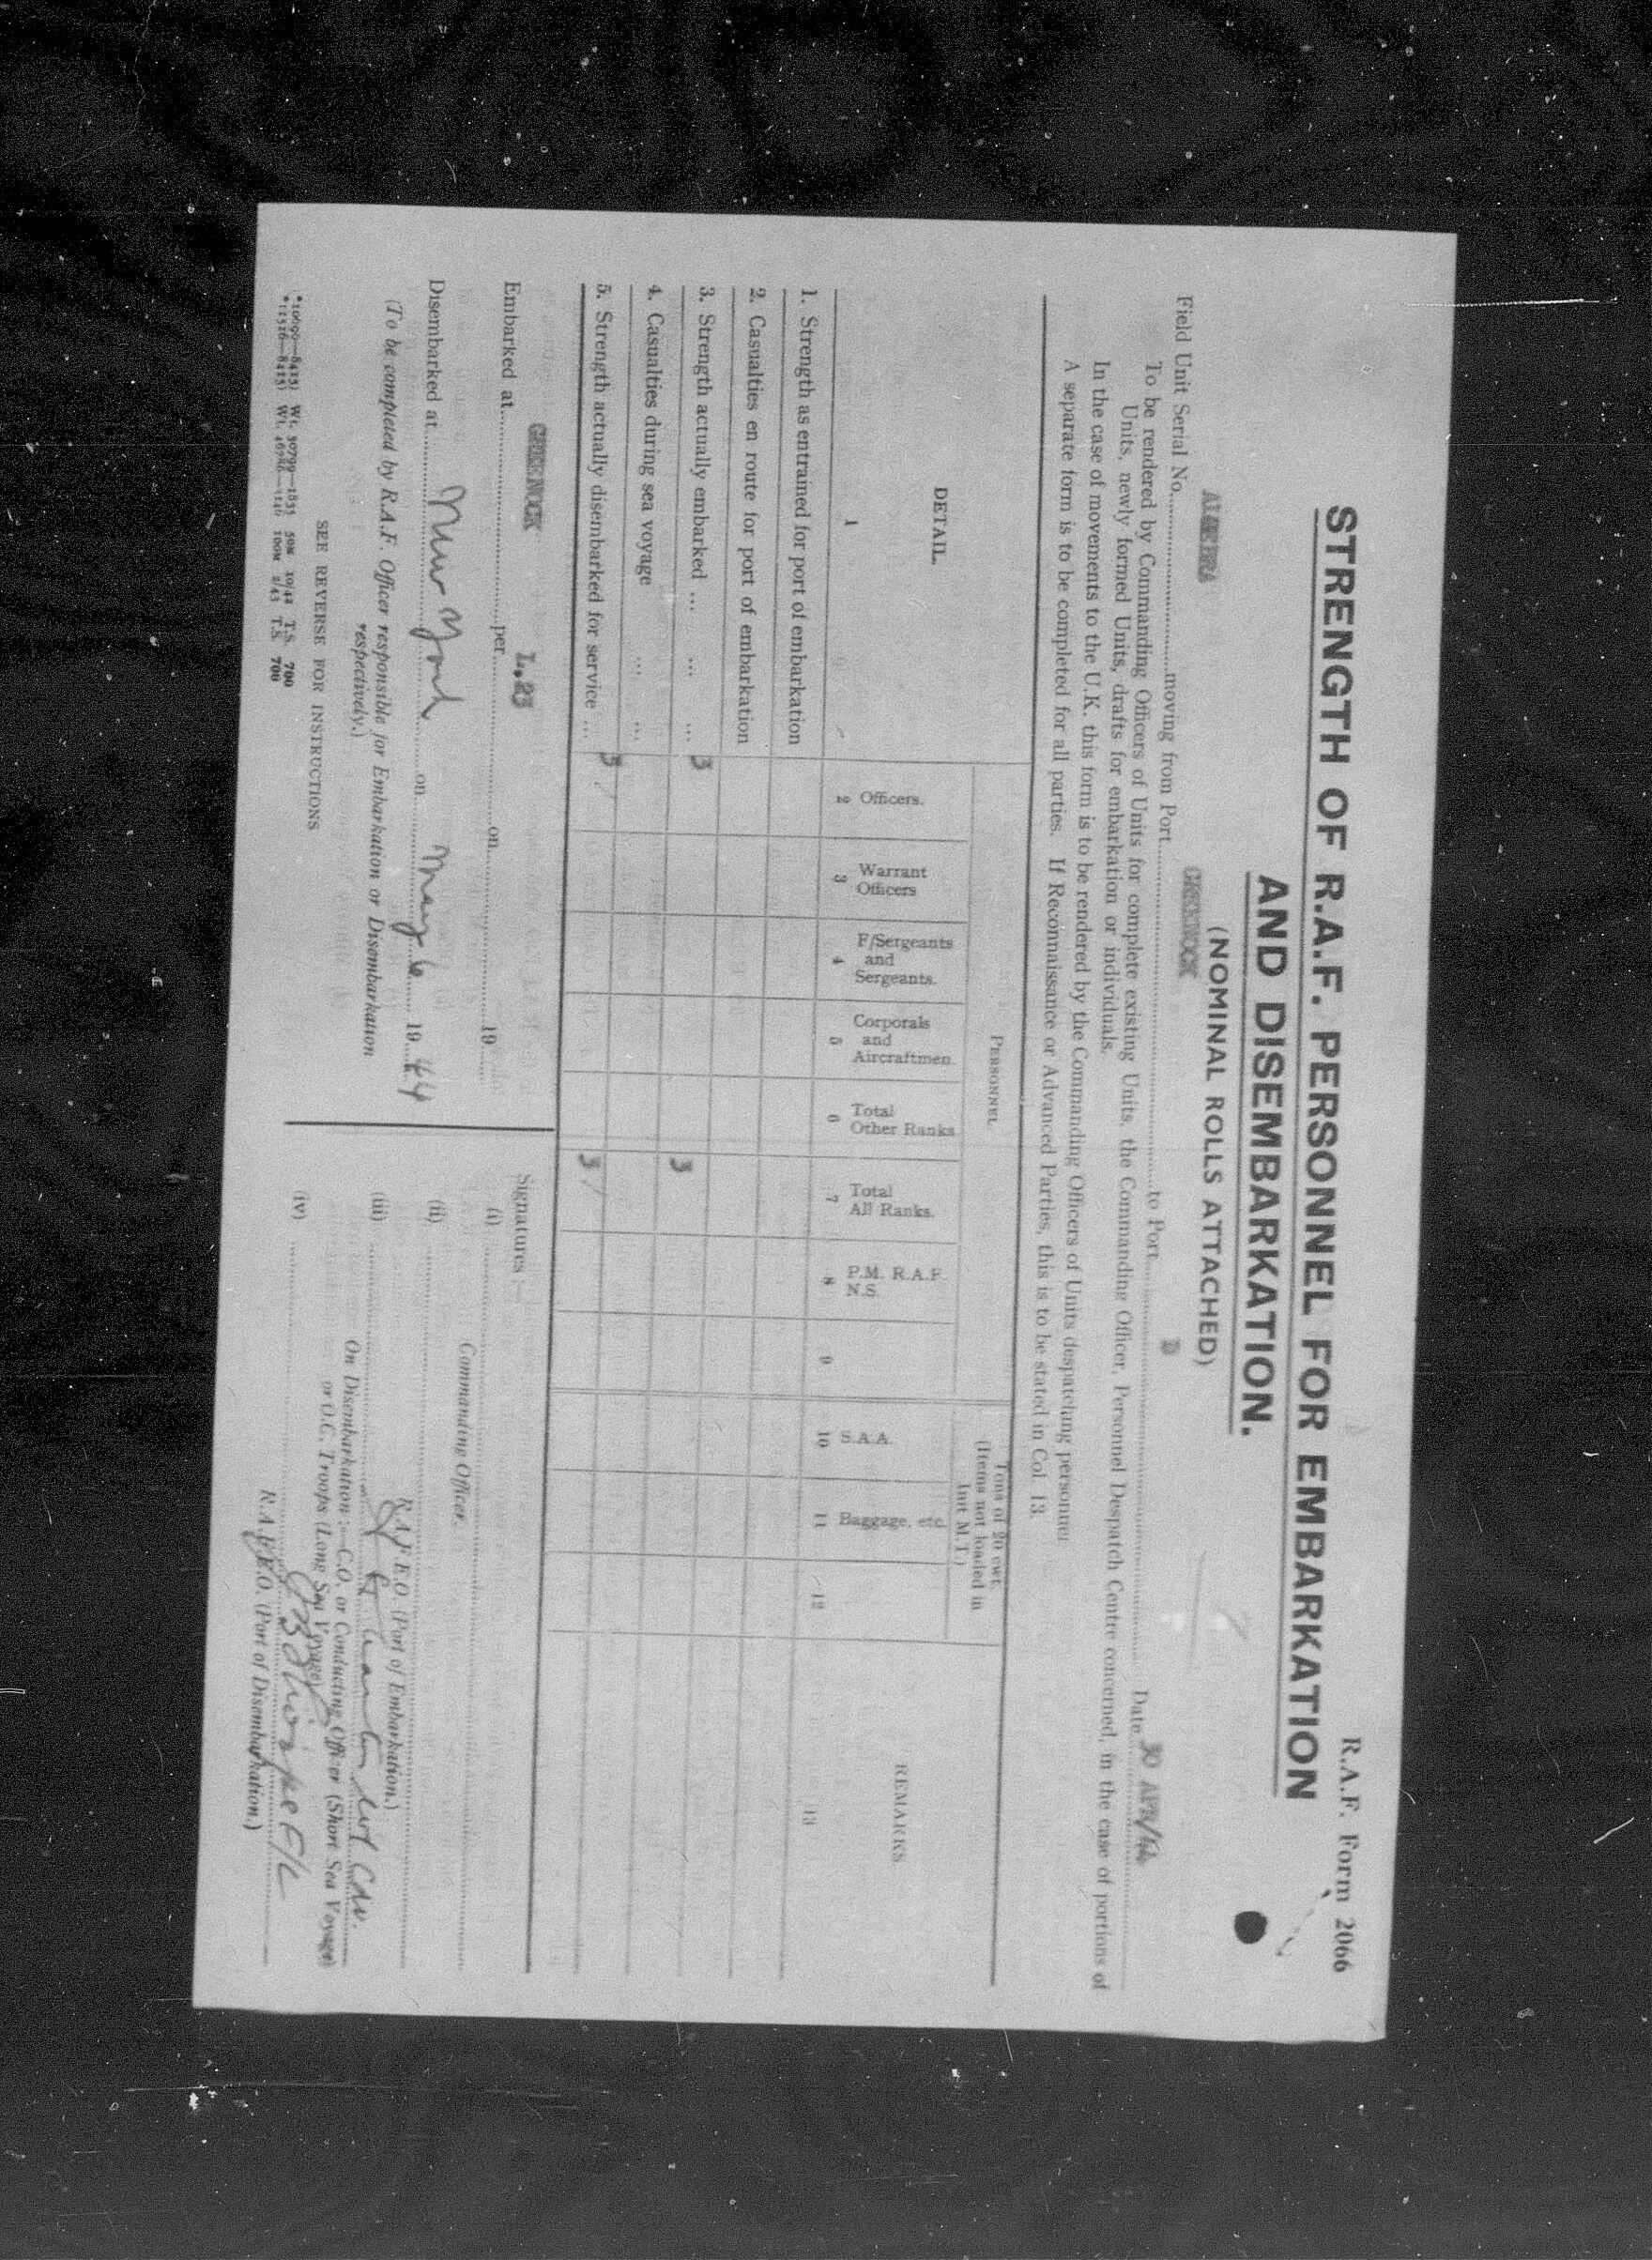 R.A.F. Form 2066
STRENGTH OF R.A.F. PERSONNEL FOR EMBARKATION
AND DISEMBARKATION.
(NOMINAL ROLLS ATTACHED)
Field Unit Serial No. moving from Port GREENOCK to Port D Date 30 APR/44
To be rendered by Commanding Officers of Units for complete existing Units, the Commanding Officer, Personnel Despatch Centre concerned, in the case of portions of
Units, newly formed Units, drafts for embarkation or individuals.
In the case of movements to the U.K. this form is to be rendered by the Commanding Officers of Units despatching personnel
A separate form is to be completed for all parties. If Reconnaissance or Advanced Parties, this is to be stated in Col. 13.
DETAIL.
PERSONNEL.
Tons of 20 cwt.
(Items not loaded in
Unit M.T.)
REMARKS
Officers.
Warrant
Officers
F/Sergeants
and
Sergeants.
Corporals
and
Aircraftmen.
Total
Other Ranks
Total
All Ranks.
P.M. R.A.F.
N.S.
S.A.A.
Baggage, etc.
1 2 3 4 5 6 7 8 9 10 11 12 13
1. Strength as entrained for port of embarkation
2. Casualties en route for port of embarkation
3. Strength actually embarked ... ... ... 3 3
4. Casualties during sea voyage ... ...
5. Strength actually disembarked for service ... 3 3
Embarked at GREENOCK per L.23 on 19
Disembarked at New York on May 6 19 44
(To be completed by R.A.F. Officer responsible for Embarkation or Disembarkation
respectively.)
SEE REVERSE FOR INSTRUCTIONS
*10690—8415) Wt. 30799—1833 50M 10/42 T.S. 700
*11516—8415) Wt. 100M 2/43 T.S. 700
Signatures :—
(i)
Commanding Officer.
(ii)
R.A.F.E.O. (Port of Embarkation.)
(iii)
On Disembarkation :—C.O. or Conducting Officer (Short Sea Voyage)
or O.C. Troops (Long Sea Voyage)
(iv) F/L
R.A.F.E.O. (Port of Disembarkation.)